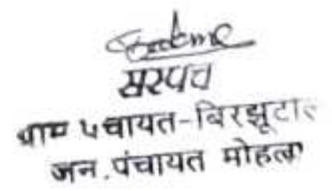 सरपंच
ग्राम पंचायत-बिरझूटोला
जन.पंचायत मोहला